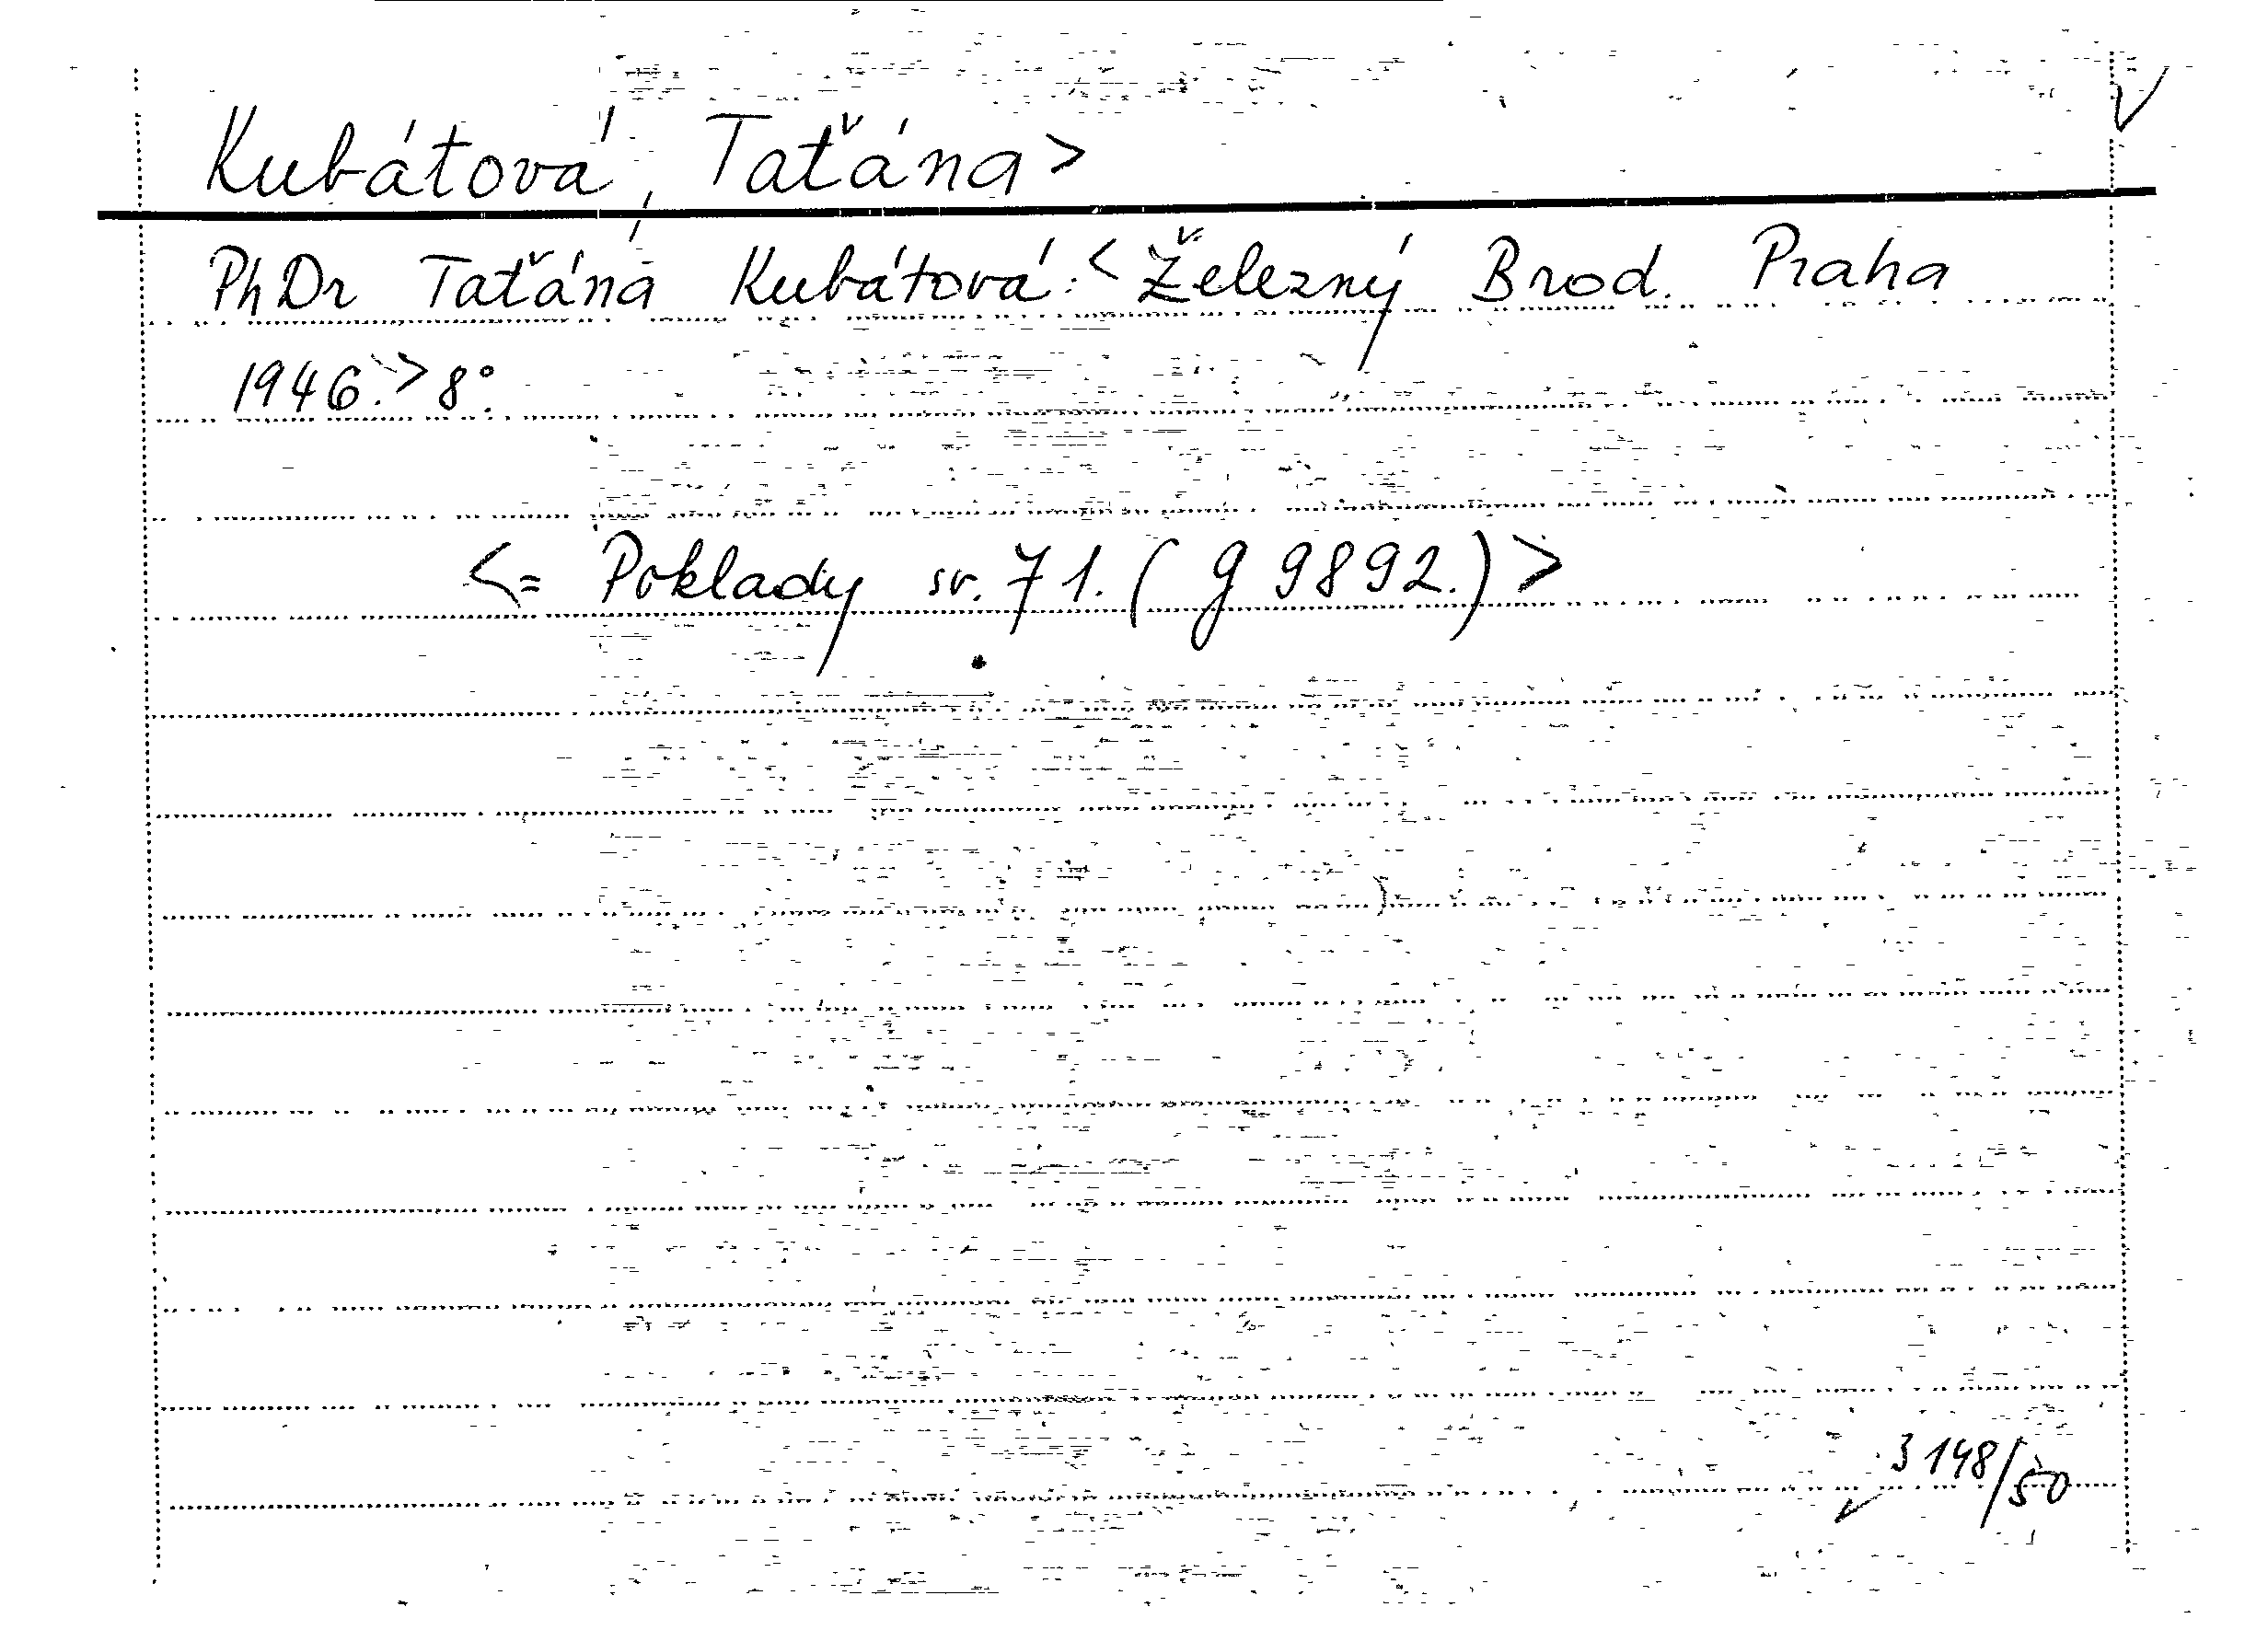 Kubátová, Taťána>
PhDr Taťána Kubátová: <Železný Brod. Praha
1946.> 8°.
<= Poklady sv. 71. (g 9892.)>
3148/50